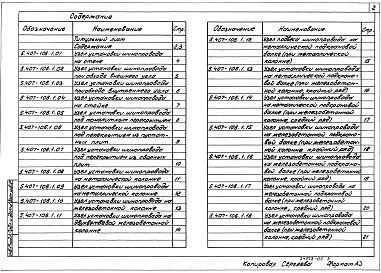 Содержание
2
Обозначение Наименование Стр.
Титульный лист
Содержание 2,3
5.407-108.1.01 Узел установки шинопровода
на стене 4
5.407-108.1.02 Узел установки шинопровода
при обходе внешнего угла 5
5.407-108.1.03 Узел установки шинопровода
при обходе внутреннего угла 6
5.407-108.1.04 Узел установки шинопровода
на стойке 7
5.407-108.1.05 Узел установки шинопровода
под перекрытием 8
5.407-108.1.06 Узел установки шинопровода
под перекрытием из
плит 9
5.407-108.1.07 Узел установки шинопровода
под перекрытием из сборных
плит 10
5.407-108.1.08 Узел установки шинопровода
на металлической колонне 11
5.407-108.1.09 Узел установки шинопровода
на металлической колонне 12
5.407-108.1.10 Узел установки шинопровода на
железобетонной колонне 13
5.407-108.1.11 Узел установки шинопровода на
железобетонной
колонне 14
Обозначение Наименование Стр.
5.407-108.1.12 Узел подвеса шинопровода на
металлической подкрановой
балке (при металлической
колонне) 15
5.407-108.1.13 Узел установки шинопровода
на металлической подкрановой
балке (при железобетонной
колонне, крайний ряд) 16
5.407-108.1.14 Узел установки шинопровода
на металлической подкрановой
балке (при железобетонной
колонне, средний ряд) 17
5.407-108.1.15 Узел установки шинопровода
на железобетонной подкрановой
балке (при железобетонной
колонне, крайний ряд) 18
5.407-108.1.16 Узел установки шинопровода
на железобетонной подкрановой
балке (при железобетонной
колонне, крайний ряд) 19
5.407-108.1.17 Узел установки шинопровода на
железобетонной подкрановой
балке (при железобетонной
колонне, средний ряд) 20
5.407-108.1.18 Узел установки шинопровода на
железобетонной подкрановой
балке (при железобетонной
колонне, средний ряд) 21
Копировал Сергеева Формат А3